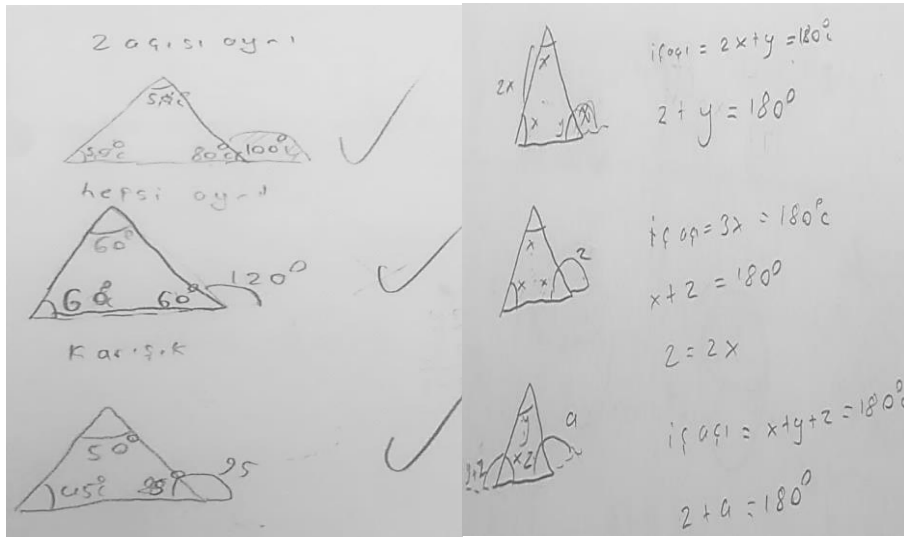 2 açısı aynı
50°c
50°c 80°c 100°c
hepsi aynı
60°
60° 60° 120°
Karışık
50°
45°c 85° 95
2x
x
x y
iç açı = 2x+y=180°c
2 + y = 180°
x
x x 2
iç açı = 3x = 180°c
x+2 = 180°
2 = 2x
y
y+2 x2 a
iç açı = x+y+2 = 180°c
2 + a = 180°